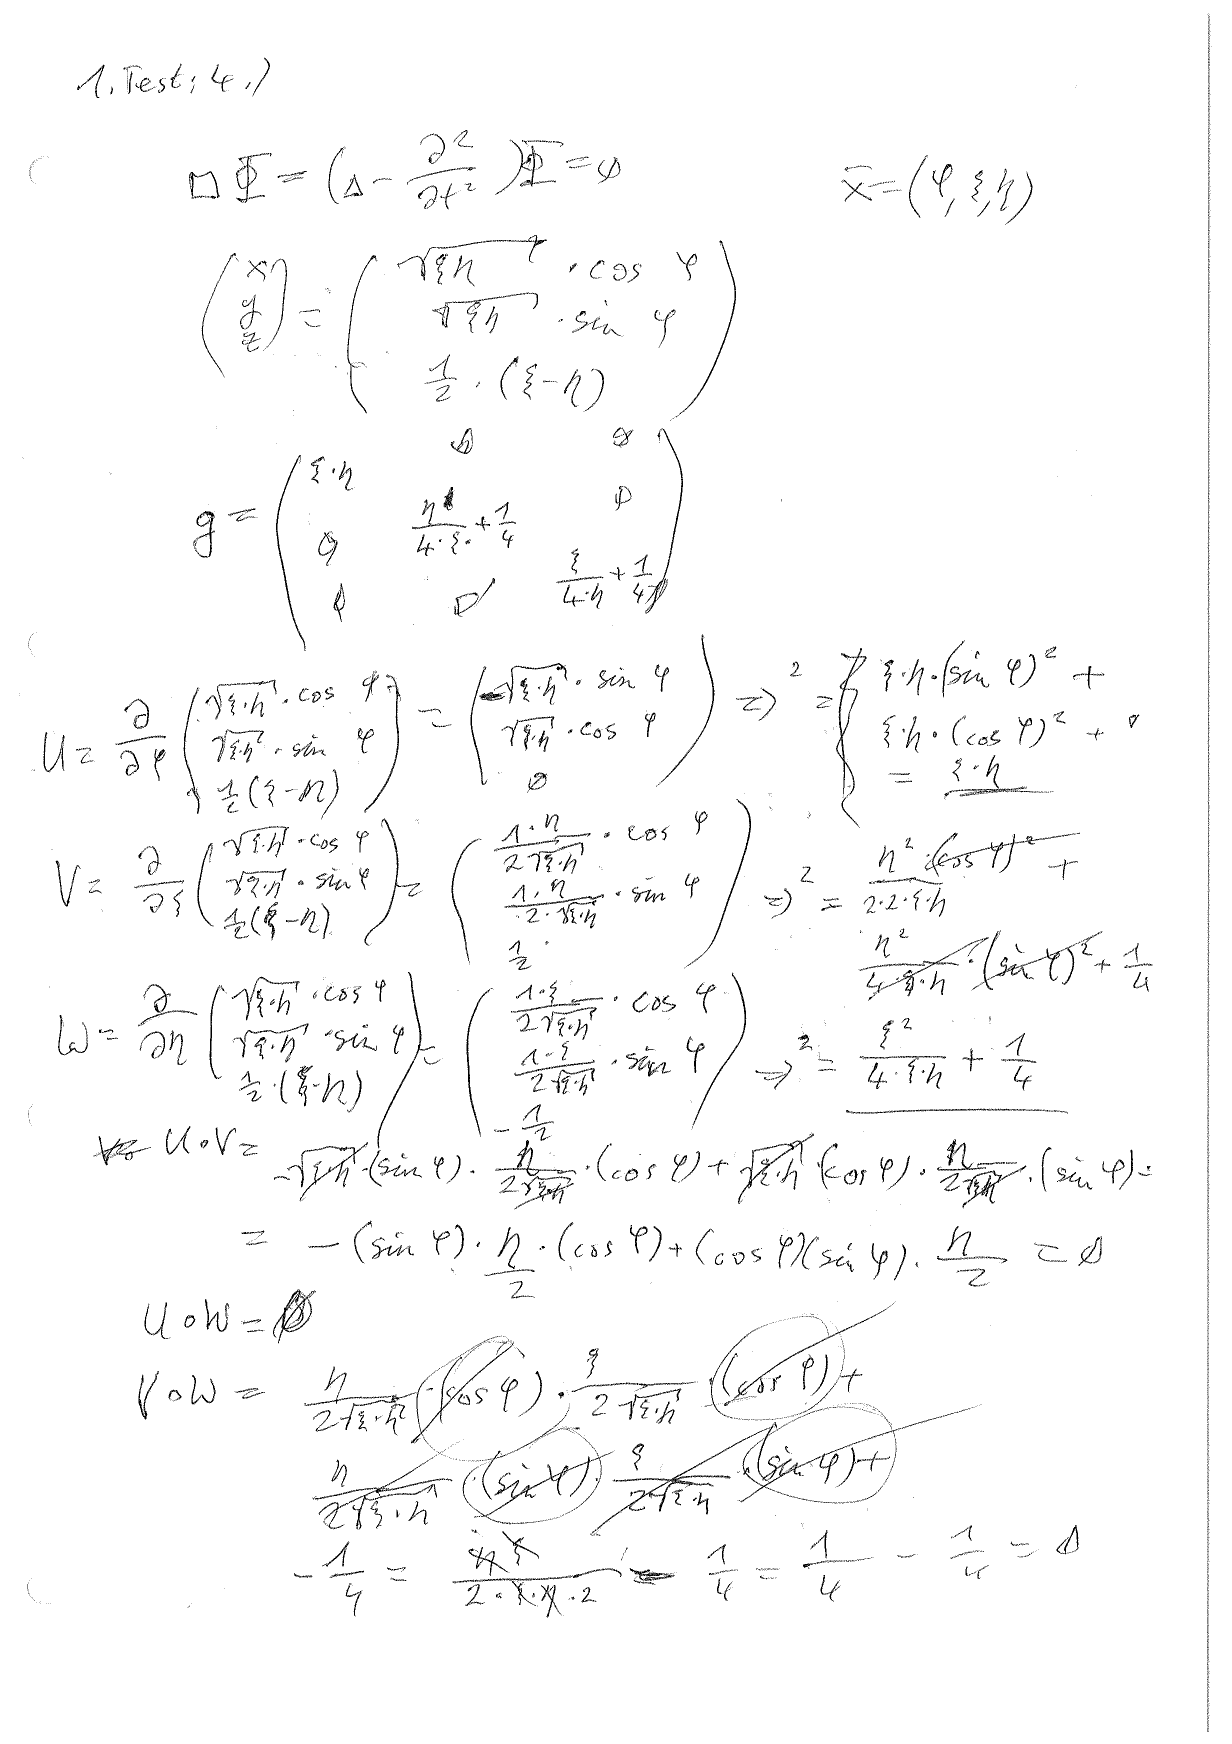 1. Test: 4.)
□Φ = (Δ - ∂²/∂t²)Φ = 0    x̄ = (φ, ξ, η)
(x y z) = ( √(ξη) · cos φ
√(ξη) · sin φ
1/2 · (ξ-η) )
g = ( ξ·η  0  0
0  η/(4·ξ) + 1/4  0
0  0  ξ/(4·η) + 1/4 )
U = ∂/∂φ ( √(ξ·η) · cos φ, √(ξ·η) · sin φ, 1/2(ξ-η) ) = ( -√(ξ·η) · sin φ, √(ξ·η) · cos φ, 0 ) ⇒ ² = { ξ·η·(sin φ)² + ξ·η·(cos φ)² + 0 = ξ·η
V = ∂/∂ξ ( √(ξ·η) · cos φ, √(ξ·η) · sin φ, 1/2(ξ-η) ) = ( 1·η/(2√(ξ·η)) · cos φ, 1·η/(2·√(ξ·η)) · sin φ, 1/2 ) ⇒ ² = η²·(cos φ)²/(2·2·ξ·η) + η²/(4·ξ·η) · (sin φ)² + 1/4
W = ∂/∂η ( √(ξ·η) · cos φ, √(ξ·η) · sin φ, 1/2·(ξ-η) ) = ( 1·ξ/(2√(ξ·η)) · cos φ, 1·ξ/(2√(ξ·η)) · sin φ, -1/2 ) ⇒ ² = ξ²/(4·ξ·η) + 1/4
U∘V = -√(ξ·η)·(sin φ) · η/(2√(ξη)) · (cos φ) + √(ξ·η)·(cos φ) · η/(2√(ξη)) · (sin φ) =
= -(sin φ) · η/2 · (cos φ) + (cos φ)(sin φ) · η/2 = 0
U∘W = 0
V∘W = η/(2√(ξ·η)) · (cos φ) · ξ/(2√(ξ·η)) · (cos φ) +
η/(2√(ξ·η)) · (sin φ) · ξ/(2√(ξ·η)) · (sin φ) +
-1/4 = ηξ/(2·ξ·η·2) - 1/4 = 1/4 - 1/4 = 0